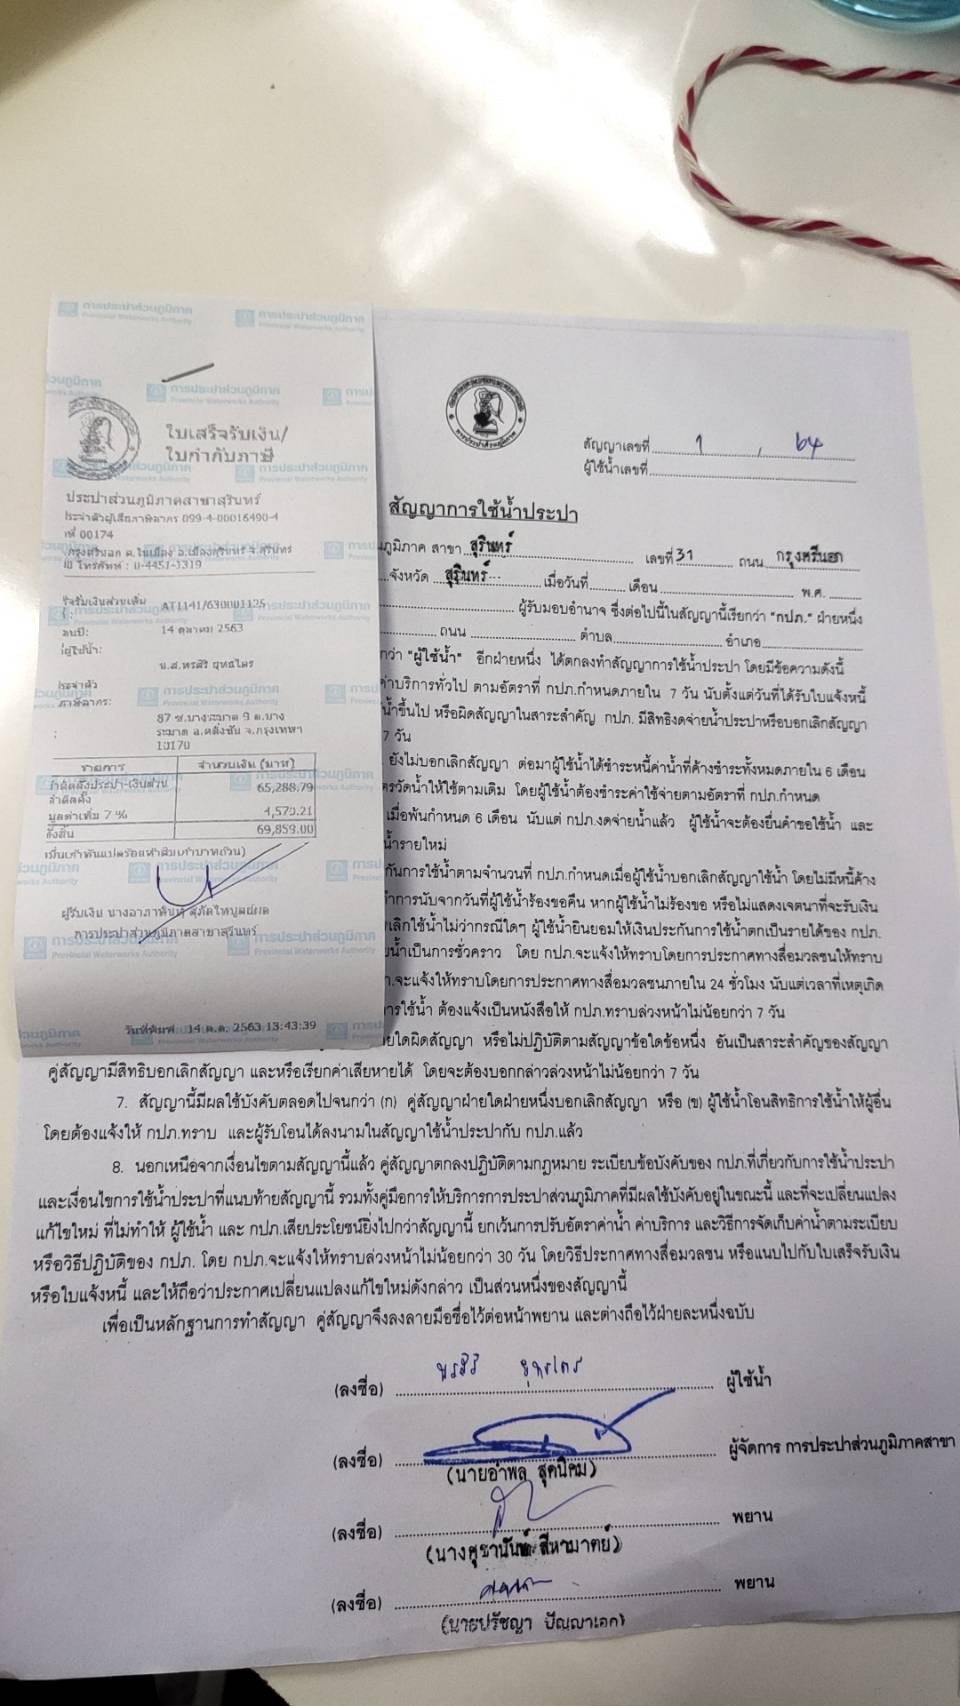 ใบเสร็จรับเงิน/
ใบกำกับภาษี
ประปาส่วนภูมิภาคสาขาสุรินทร์
ประจำตัวผู้เสียภาษีอากร 099-4-00016490-4
ที่ 00174
กรุงศรีนอก ต.ในเมือง อ.เมืองสุรินทร์ จ.สุรินทร์
โทรศัพท์ : 0-4451-1319
14 ตุลาคม 2563
ผู้ใช้น้ำ:
น.ส.
ประจำตัว
ภาษีอากร:
87 ซ.บางระมาด 9 ต.บาง
ระมาด อ.ตลิ่งชัน จ.กรุงเทพฯ
10170
รายการ จำนวนเงิน (บาท)
ติดตั้งประปา-เงินส่วน 65,288.79
มูลค่าเพิ่ม 7 % 4,570.21
ทั้งสิ้น 69,859.00
(หกหมื่นเก้าพันแปดร้อยห้าสิบเก้าบาทถ้วน)
ผู้รับเงิน นางอาภาพันท์
การประปาส่วนภูมิภาคสาขาสุรินทร์
วันที่พิมพ์ 14 ต.ค. 2563 13:43:39
สัญญาเลขที่ 1 , 64
ผู้ใช้น้ำเลขที่
สัญญาการใช้น้ำประปา
ภูมิภาค สาขา สุรินทร์ เลขที่ 31 ถนน กรุงศรีนอก
จังหวัด สุรินทร์ เมื่อวันที่ เดือน พ.ศ.
ผู้รับมอบอำนาจ ซึ่งต่อไปนี้ในสัญญานี้เรียกว่า "กปภ." ฝ่ายหนึ่ง
ถนน ตำบล อำเภอ
กว่า "ผู้ใช้น้ำ" อีกฝ่ายหนึ่ง ได้ตกลงทำสัญญาการใช้น้ำประปา โดยมีข้อความดังนี้
ค่าบริการทั่วไป ตามอัตราที่ กปภ.กำหนดภายใน 7 วัน นับตั้งแต่วันที่ได้รับใบแจ้งหนี้
น้ำขึ้นไป หรือผิดสัญญาในสาระสำคัญ กปภ. มีสิทธิงดจ่ายน้ำประปาหรือบอกเลิกสัญญา
7 วัน
ยังไม่บอกเลิกสัญญา ต่อมาผู้ใช้น้ำได้ชำระหนี้ค่าน้ำที่ค้างชำระทั้งหมดภายใน 6 เดือน
ตรวัดน้ำให้ใช้ตามเดิม โดยผู้ใช้น้ำต้องชำระค่าใช้จ่ายตามอัตราที่ กปภ.กำหนด
เมื่อพ้นกำหนด 6 เดือน นับแต่ กปภ.งดจ่ายน้ำแล้ว ผู้ใช้น้ำจะต้องยื่นคำขอใช้น้ำ และ
น้ำรายใหม่
กันการใช้น้ำตามจำนวนที่ กปภ.กำหนดเมื่อผู้ใช้น้ำบอกเลิกสัญญาใช้น้ำ โดยไม่มีหนี้ค้าง
ทำการนับจากวันที่ผู้ใช้น้ำร้องขอคืน หากผู้ใช้น้ำไม่ร้องขอ หรือไม่แสดงเจตนาที่จะรับเงิน
เลิกใช้น้ำไม่ว่ากรณีใดๆ ผู้ใช้น้ำยินยอมให้เงินประกันการใช้น้ำตกเป็นรายได้ของ กปภ.
น้ำเป็นการชั่วคราว โดย กปภ.จะแจ้งให้ทราบโดยการประกาศทางสื่อมวลชนให้ทราบ
จะแจ้งให้ทราบโดยการประกาศทางสื่อมวลชนภายใน 24 ชั่วโมง นับแต่เวลาที่เหตุเกิด
การใช้น้ำ ต้องแจ้งเป็นหนังสือให้ กปภ.ทราบล่วงหน้าไม่น้อยกว่า 7 วัน
ยใดผิดสัญญา หรือไม่ปฏิบัติตามสัญญาข้อใดข้อหนึ่ง อันเป็นสาระสำคัญของสัญญา
คู่สัญญามีสิทธิบอกเลิกสัญญา และหรือเรียกค่าเสียหายได้ โดยจะต้องบอกกล่าวล่วงหน้าไม่น้อยกว่า 7 วัน
7. สัญญานี้มีผลใช้บังคับตลอดไปจนกว่า (ก) คู่สัญญาฝ่ายใดฝ่ายหนึ่งบอกเลิกสัญญา หรือ (ข) ผู้ใช้น้ำโอนสิทธิการใช้น้ำให้ผู้อื่น
โดยต้องแจ้งให้ กปภ.ทราบ และผู้รับโอนได้ลงนามในสัญญาใช้น้ำประปากับ กปภ.แล้ว
8. นอกเหนือจากเงื่อนไขตามสัญญานี้แล้ว คู่สัญญาตกลงปฏิบัติตามกฎหมาย ระเบียบข้อบังคับของ กปภ.ที่เกี่ยวกับการใช้น้ำประปา
และเงื่อนไขการใช้น้ำประปาที่แนบท้ายสัญญานี้ รวมทั้งคู่มือการให้บริการการประปาส่วนภูมิภาคที่มีผลใช้บังคับอยู่ในขณะนี้ และที่จะเปลี่ยนแปลง
แก้ไขใหม่ ที่ไม่ทำให้ ผู้ใช้น้ำ และ กปภ.เสียประโยชน์ยิ่งไปกว่าสัญญานี้ ยกเว้นการปรับอัตราค่าน้ำ ค่าบริการ และวิธีการจัดเก็บค่าน้ำตามระเบียบ
หรือวิธีปฏิบัติของ กปภ. โดย กปภ.จะแจ้งให้ทราบล่วงหน้าไม่น้อยกว่า 30 วัน โดยวิธีประกาศทางสื่อมวลชน หรือแนบไปกับใบเสร็จรับเงิน
หรือใบแจ้งหนี้ และให้ถือว่าประกาศเปลี่ยนแปลงแก้ไขใหม่ดังกล่าว เป็นส่วนหนึ่งของสัญญานี้
เพื่อเป็นหลักฐานการทำสัญญา คู่สัญญาจึงลงลายมือชื่อไว้ต่อหน้าพยาน และต่างถือไว้ฝ่ายละหนึ่งฉบับ
(ลงชื่อ) ผู้ใช้น้ำ
(ลงชื่อ) ผู้จัดการ การประปาส่วนภูมิภาคสาขา
(นายอำพล สุคนิคม)
(ลงชื่อ) พยาน
(ลงชื่อ) พยาน
(นายปรัชญา ปัญญาเอก)